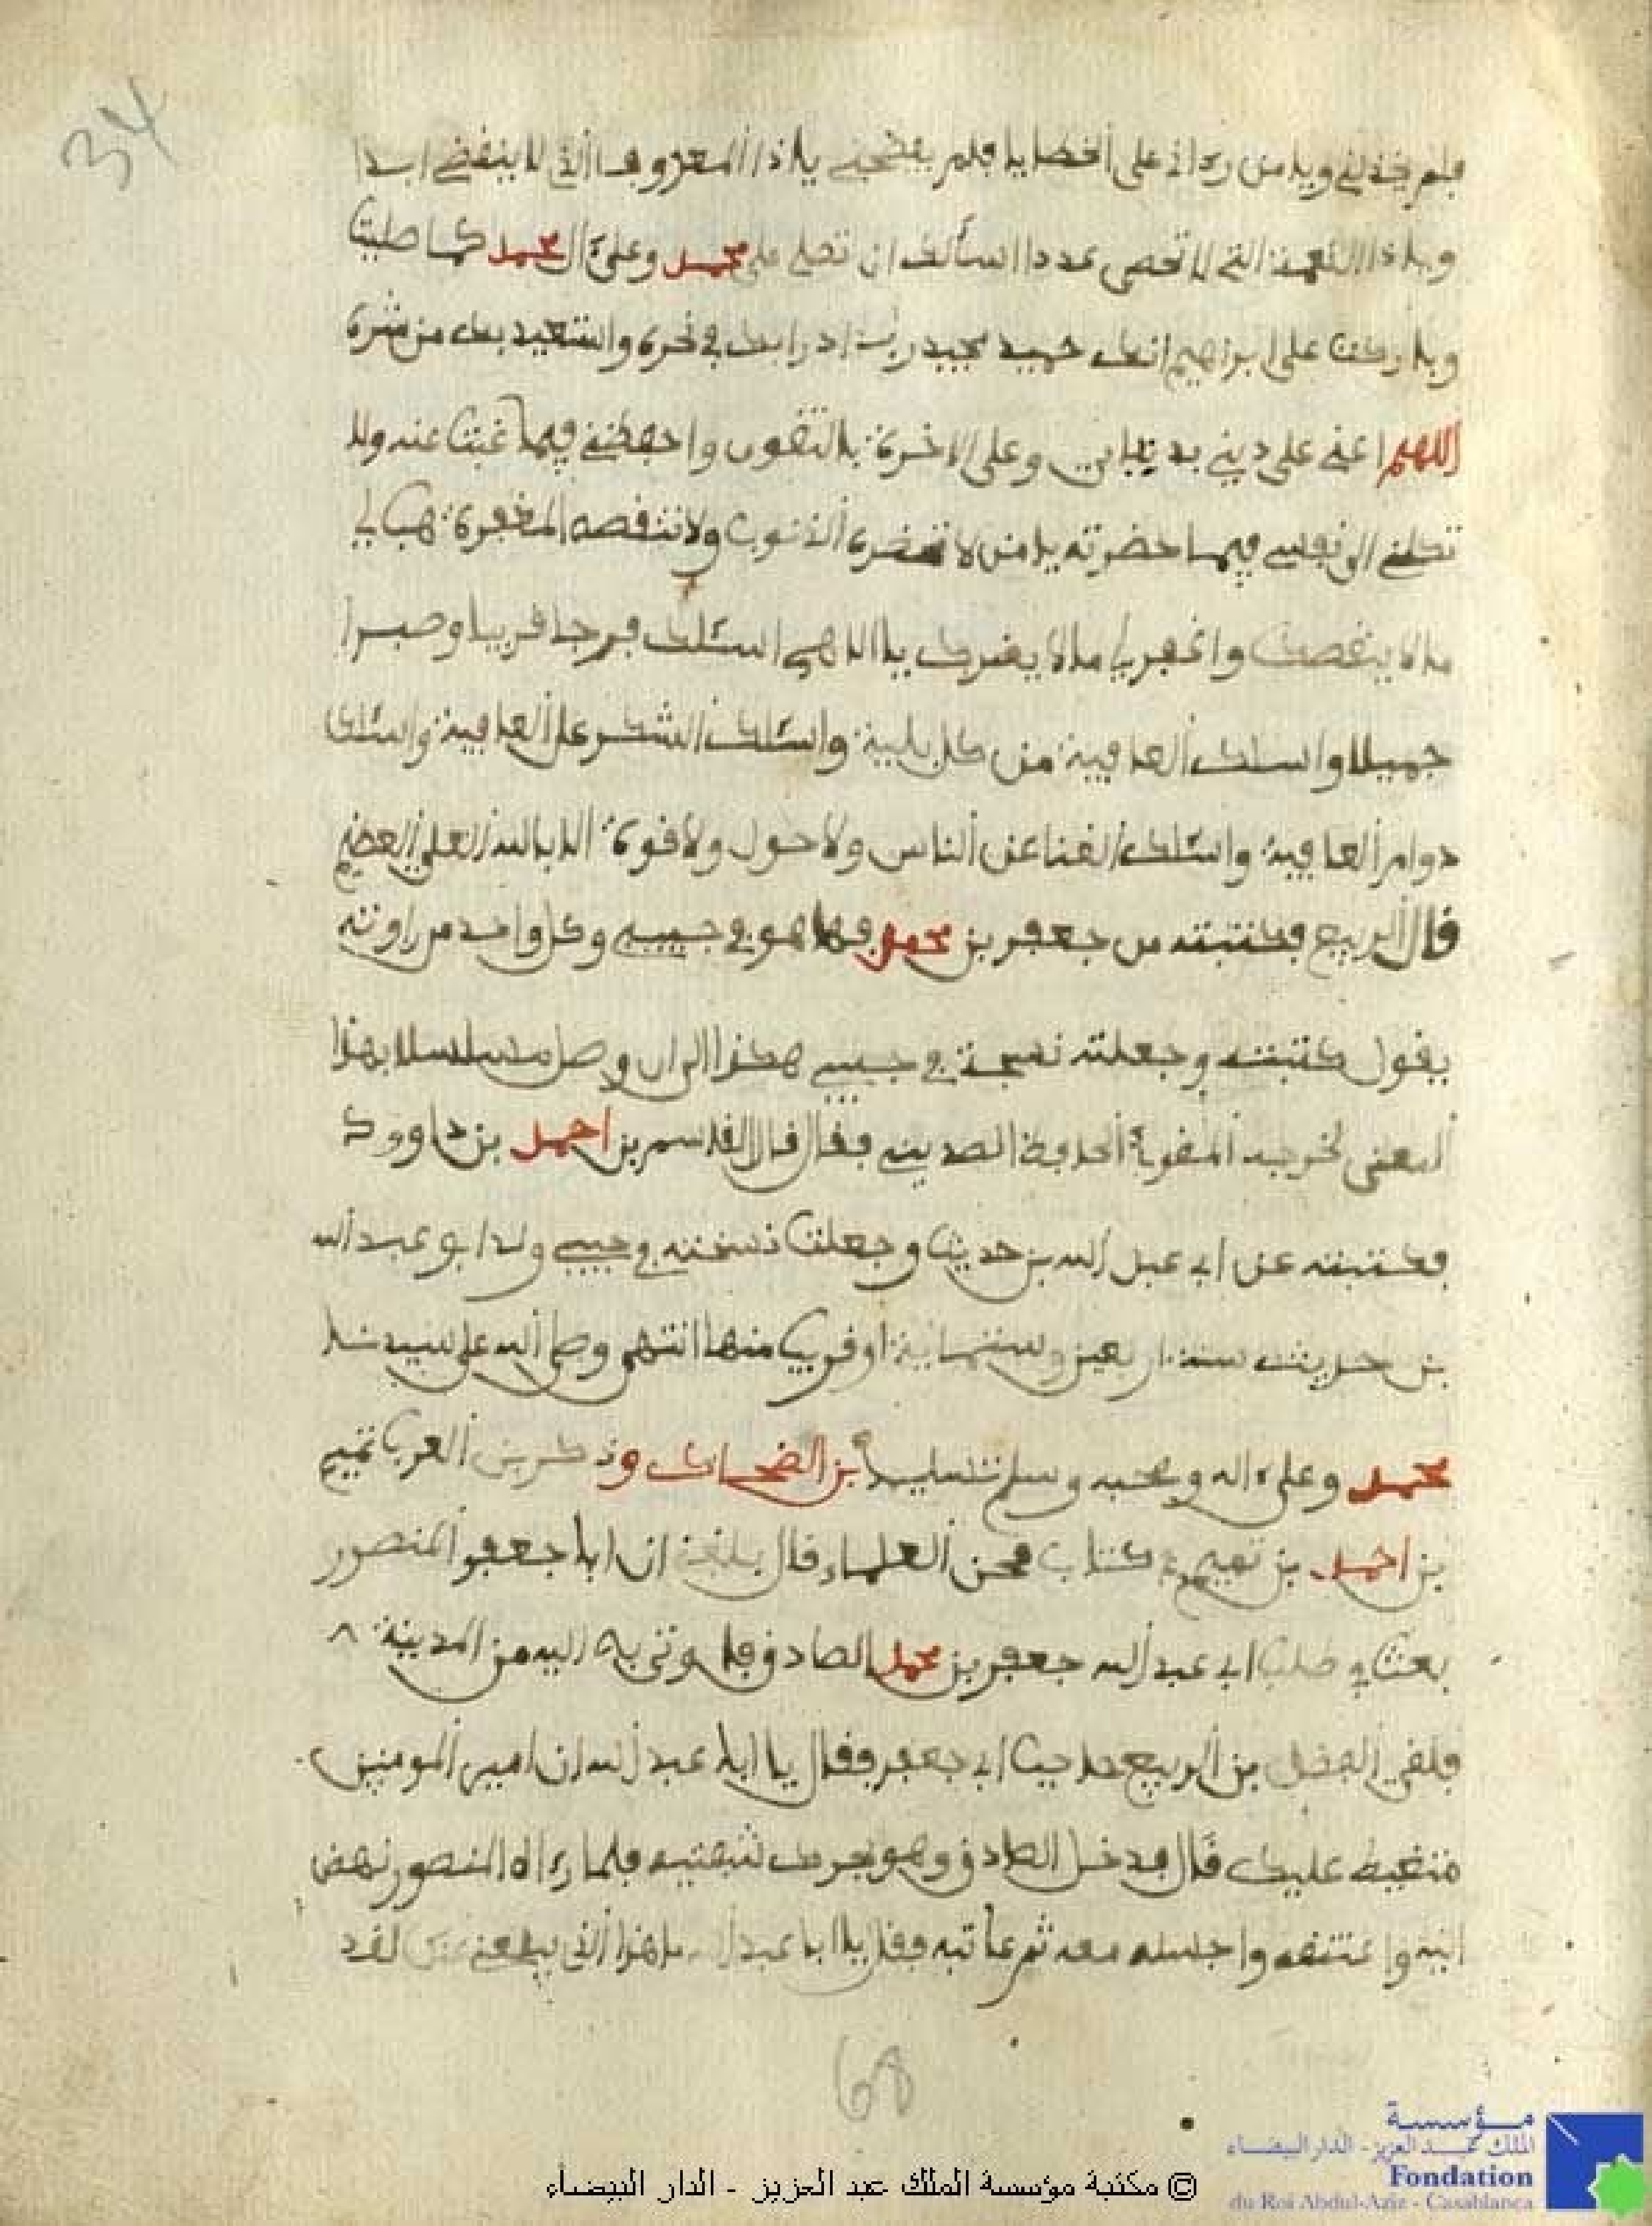 34
فلم يخذلني ويا من رءاني على الخطايا فلم يفضحني يا ذا المعروف الذي لا ينقضي ابدا
ويا ذا النعمة التي لا تحصى عددا اسألك ان تصلي على محمد وعلى ءال محمد كما صليت
وباركت على ابراهيم انك حميد مجيد رب ادرا بك في نحره واستعيذ بك من شره
اللهم اعني على ديني بدنياي وعلى الاخرة بالتقوى واحفظني فيما غبت عنه ولا
تكلني الى نفسي فيما حضرته يا من لا تضره الذنوب ولا تنقصه المغفرة هب لي
ما لا ينقصك واغفر لي ما لا يضرك يا الاهي اسئلك فرجا قريبا وصبرا
جميلا واسلك العافية من كل بلية واسئلك الشكر على العافية واسئلك
دوام العافية واسئلك الغنا عن الناس ولا حول ولا قوة الا بالله العلي العظيم
قال الربيع فكتبته من جعفر بن محمد فها هو في جيبي وكل واحد من راوته
يقول كتبته وجعلته نسخة في جيبي هكذا الى ان وصل مسلسلا بهذا
المعنى لخرجه الحافظ الصديني فقال قال القاسم بن احمد بن داوود
فكتبته عن ابي عبد الله بن حديث وجعلت نسخته في جيبي ولد ابو عبد الله
بن حديث سنة اربعين وستمائة او قريب منها انتهى وصلى الله على سيدنا
محمد وعلى ءاله وصحبه وسلم تسليما بن الضحاك وذكر بن العرب تميم
بن احمد بن تميم في كتاب محن العلماء قال بلغني ان ابا جعفر المنصور
بعث في طلب ابي عبد الله جعفر بن محمد الصادق فلما وتي به اليه من المدينة
فلقي الفضل بن الربيع حاجب ابي جعفر فقال يا ابا عبد الله ان امير المومنين
متغيظ عليك قال فدخل الصادق وهو يحرك شفتيه فلما رءاه المنصور نهض
اليه واعتنقه واجلسه معه ثم عاتبه فقال يا ابا عبد الله ما هذا الذي يبلغني عنك لقد
68
مؤسسة
الملك عبد العزيز - الدار البيضاء
Fondation
du Roi Abdul-Aziz - Casablanca
© مكتبة مؤسسة الملك عبد العزيز - الدار البيضاء